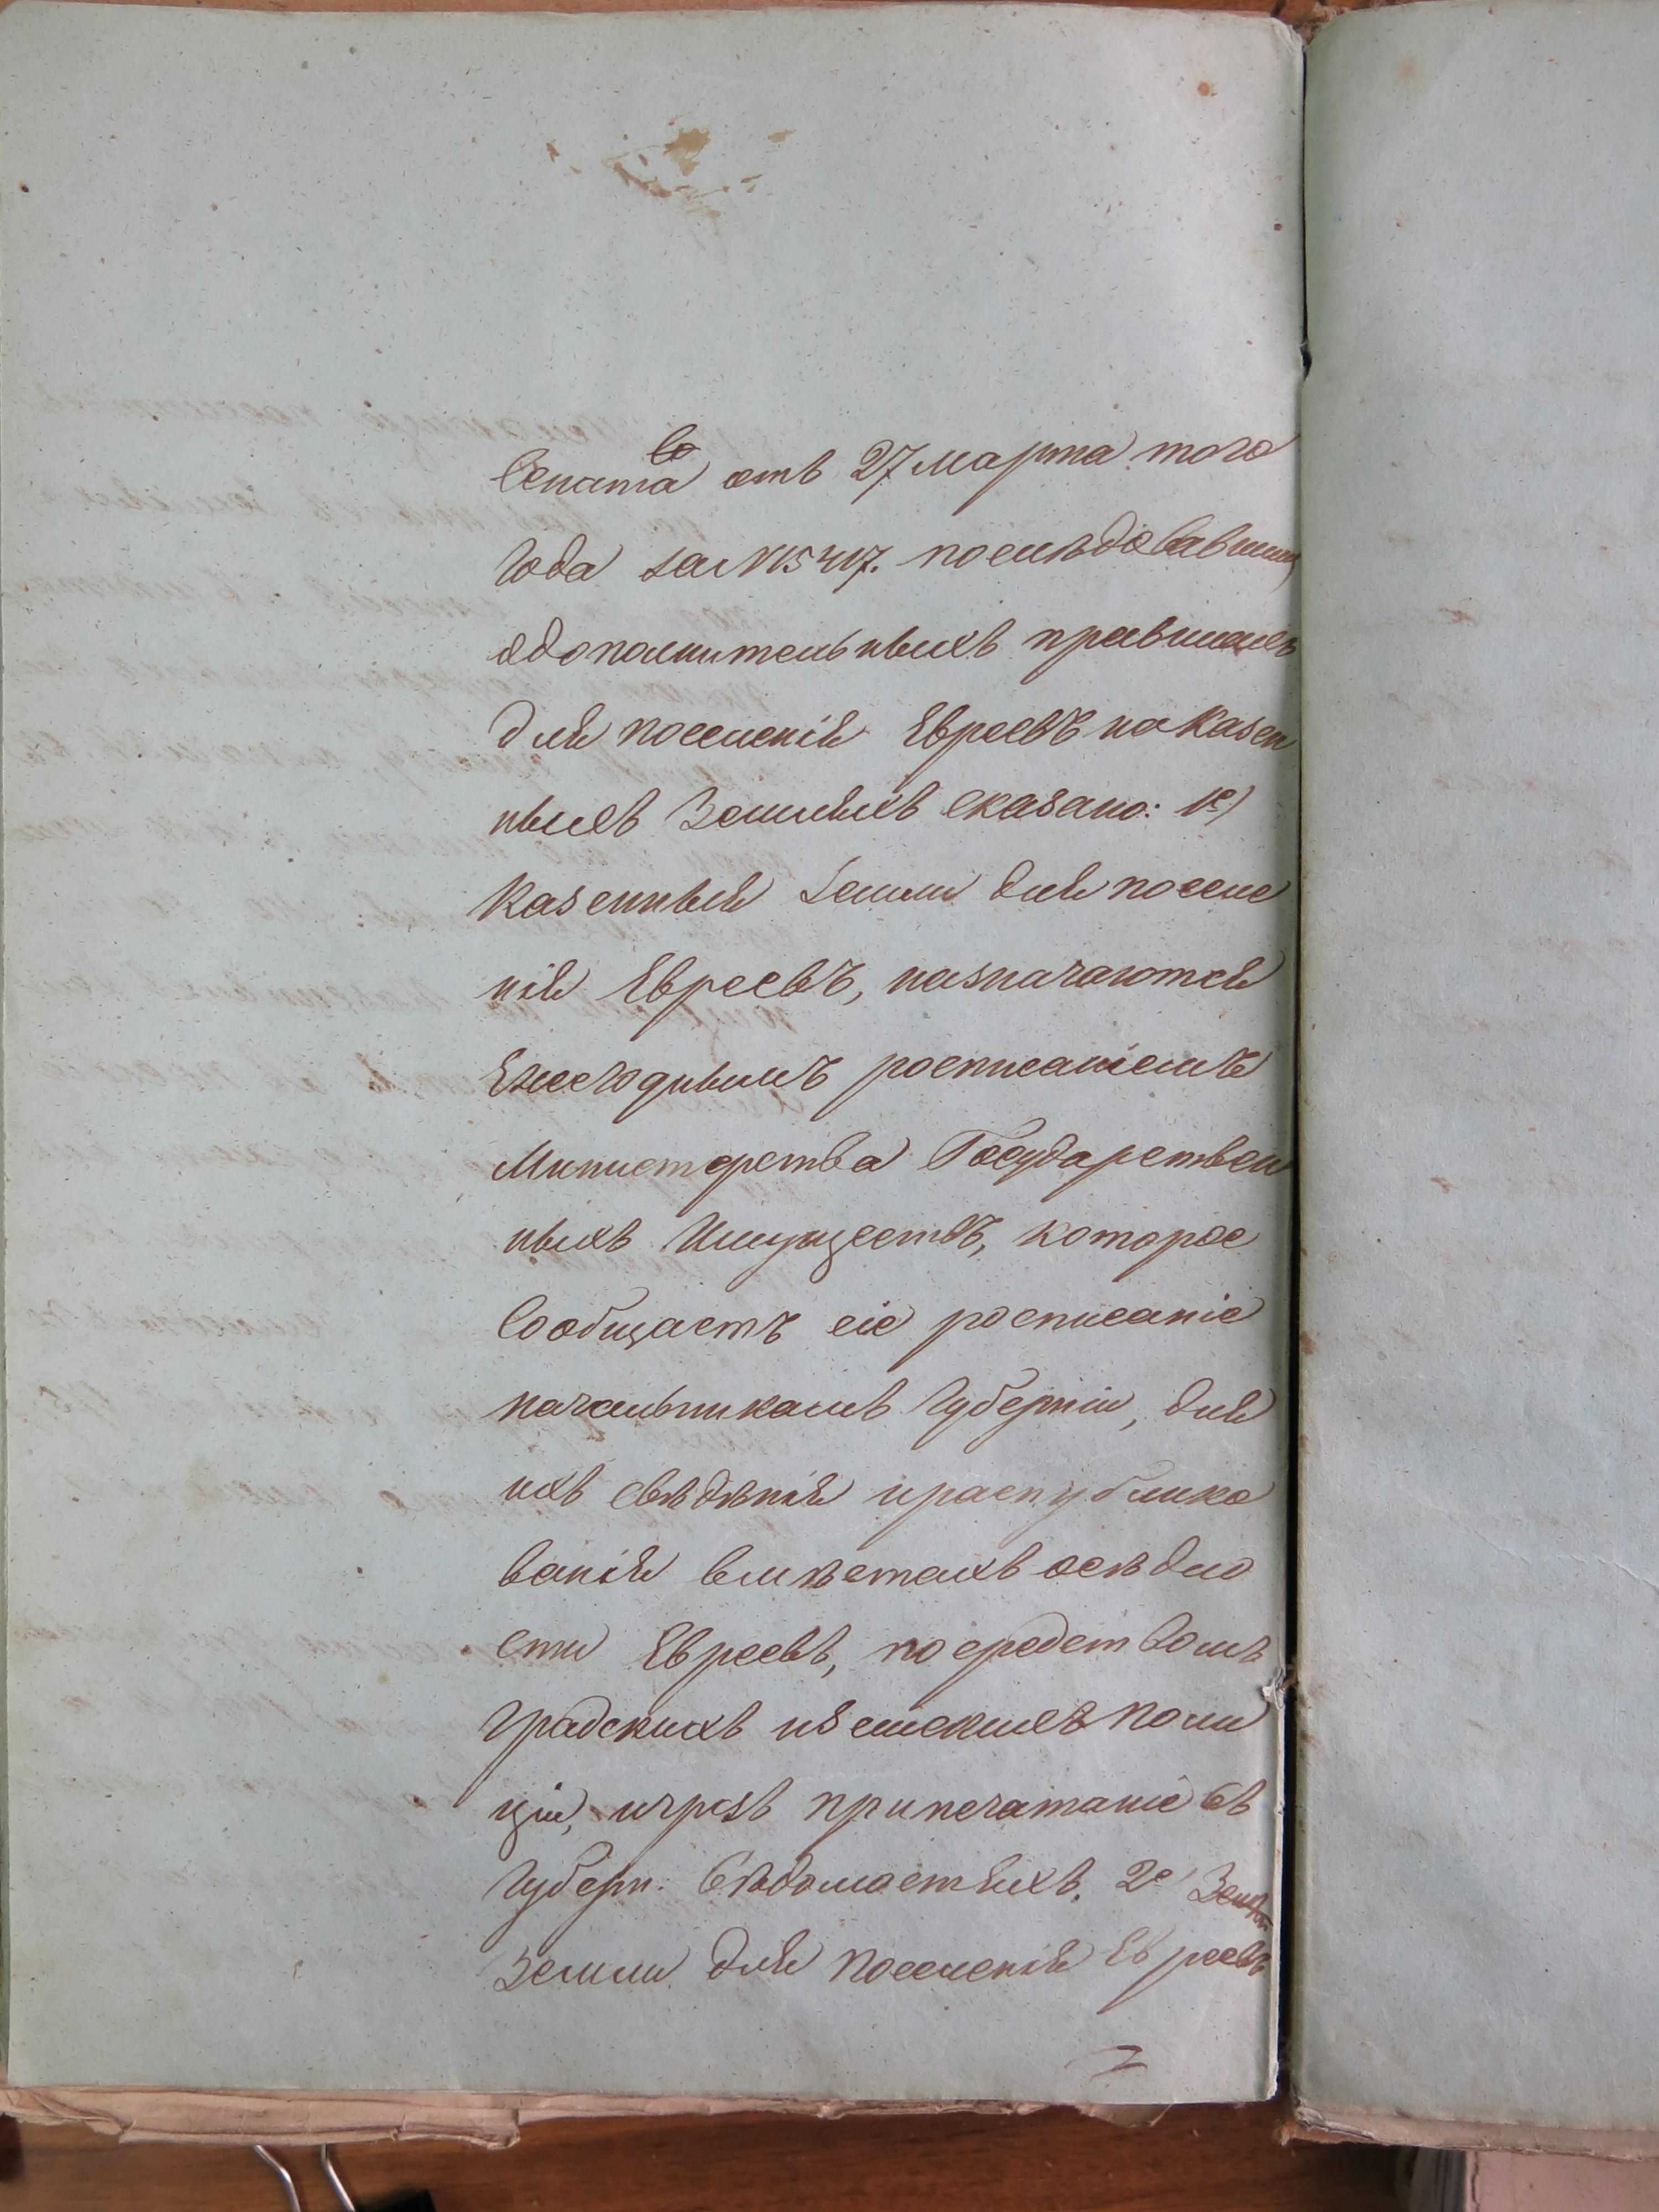 Сената отъ 27 марта того
года за №15417. последовавшихъ
одополнительныхъ правилахъ
для поселенія Евреевъ на казен
ныхъ Земляхъ сказано: 1е)
Казенныя земли для поселе
нія Евреевъ, назначаются
Ежегоднымъ росписаніемъ
Министерства Государствен
ныхъ Имуществъ, которое
сообщаетъ сіе росписаніе
начальникамъ Губерніи, для
ихъ свѣдѣнія и распублико
ванія вмѣстахъ осѣдло
сти Евреевъ, посредствомъ
градскихъ и земскихъ поли
ціи, и чрезъ припечатаніе въ
Губерн. Вѣдомостяхъ. 2е)
Земли для поселенія Евреевъ